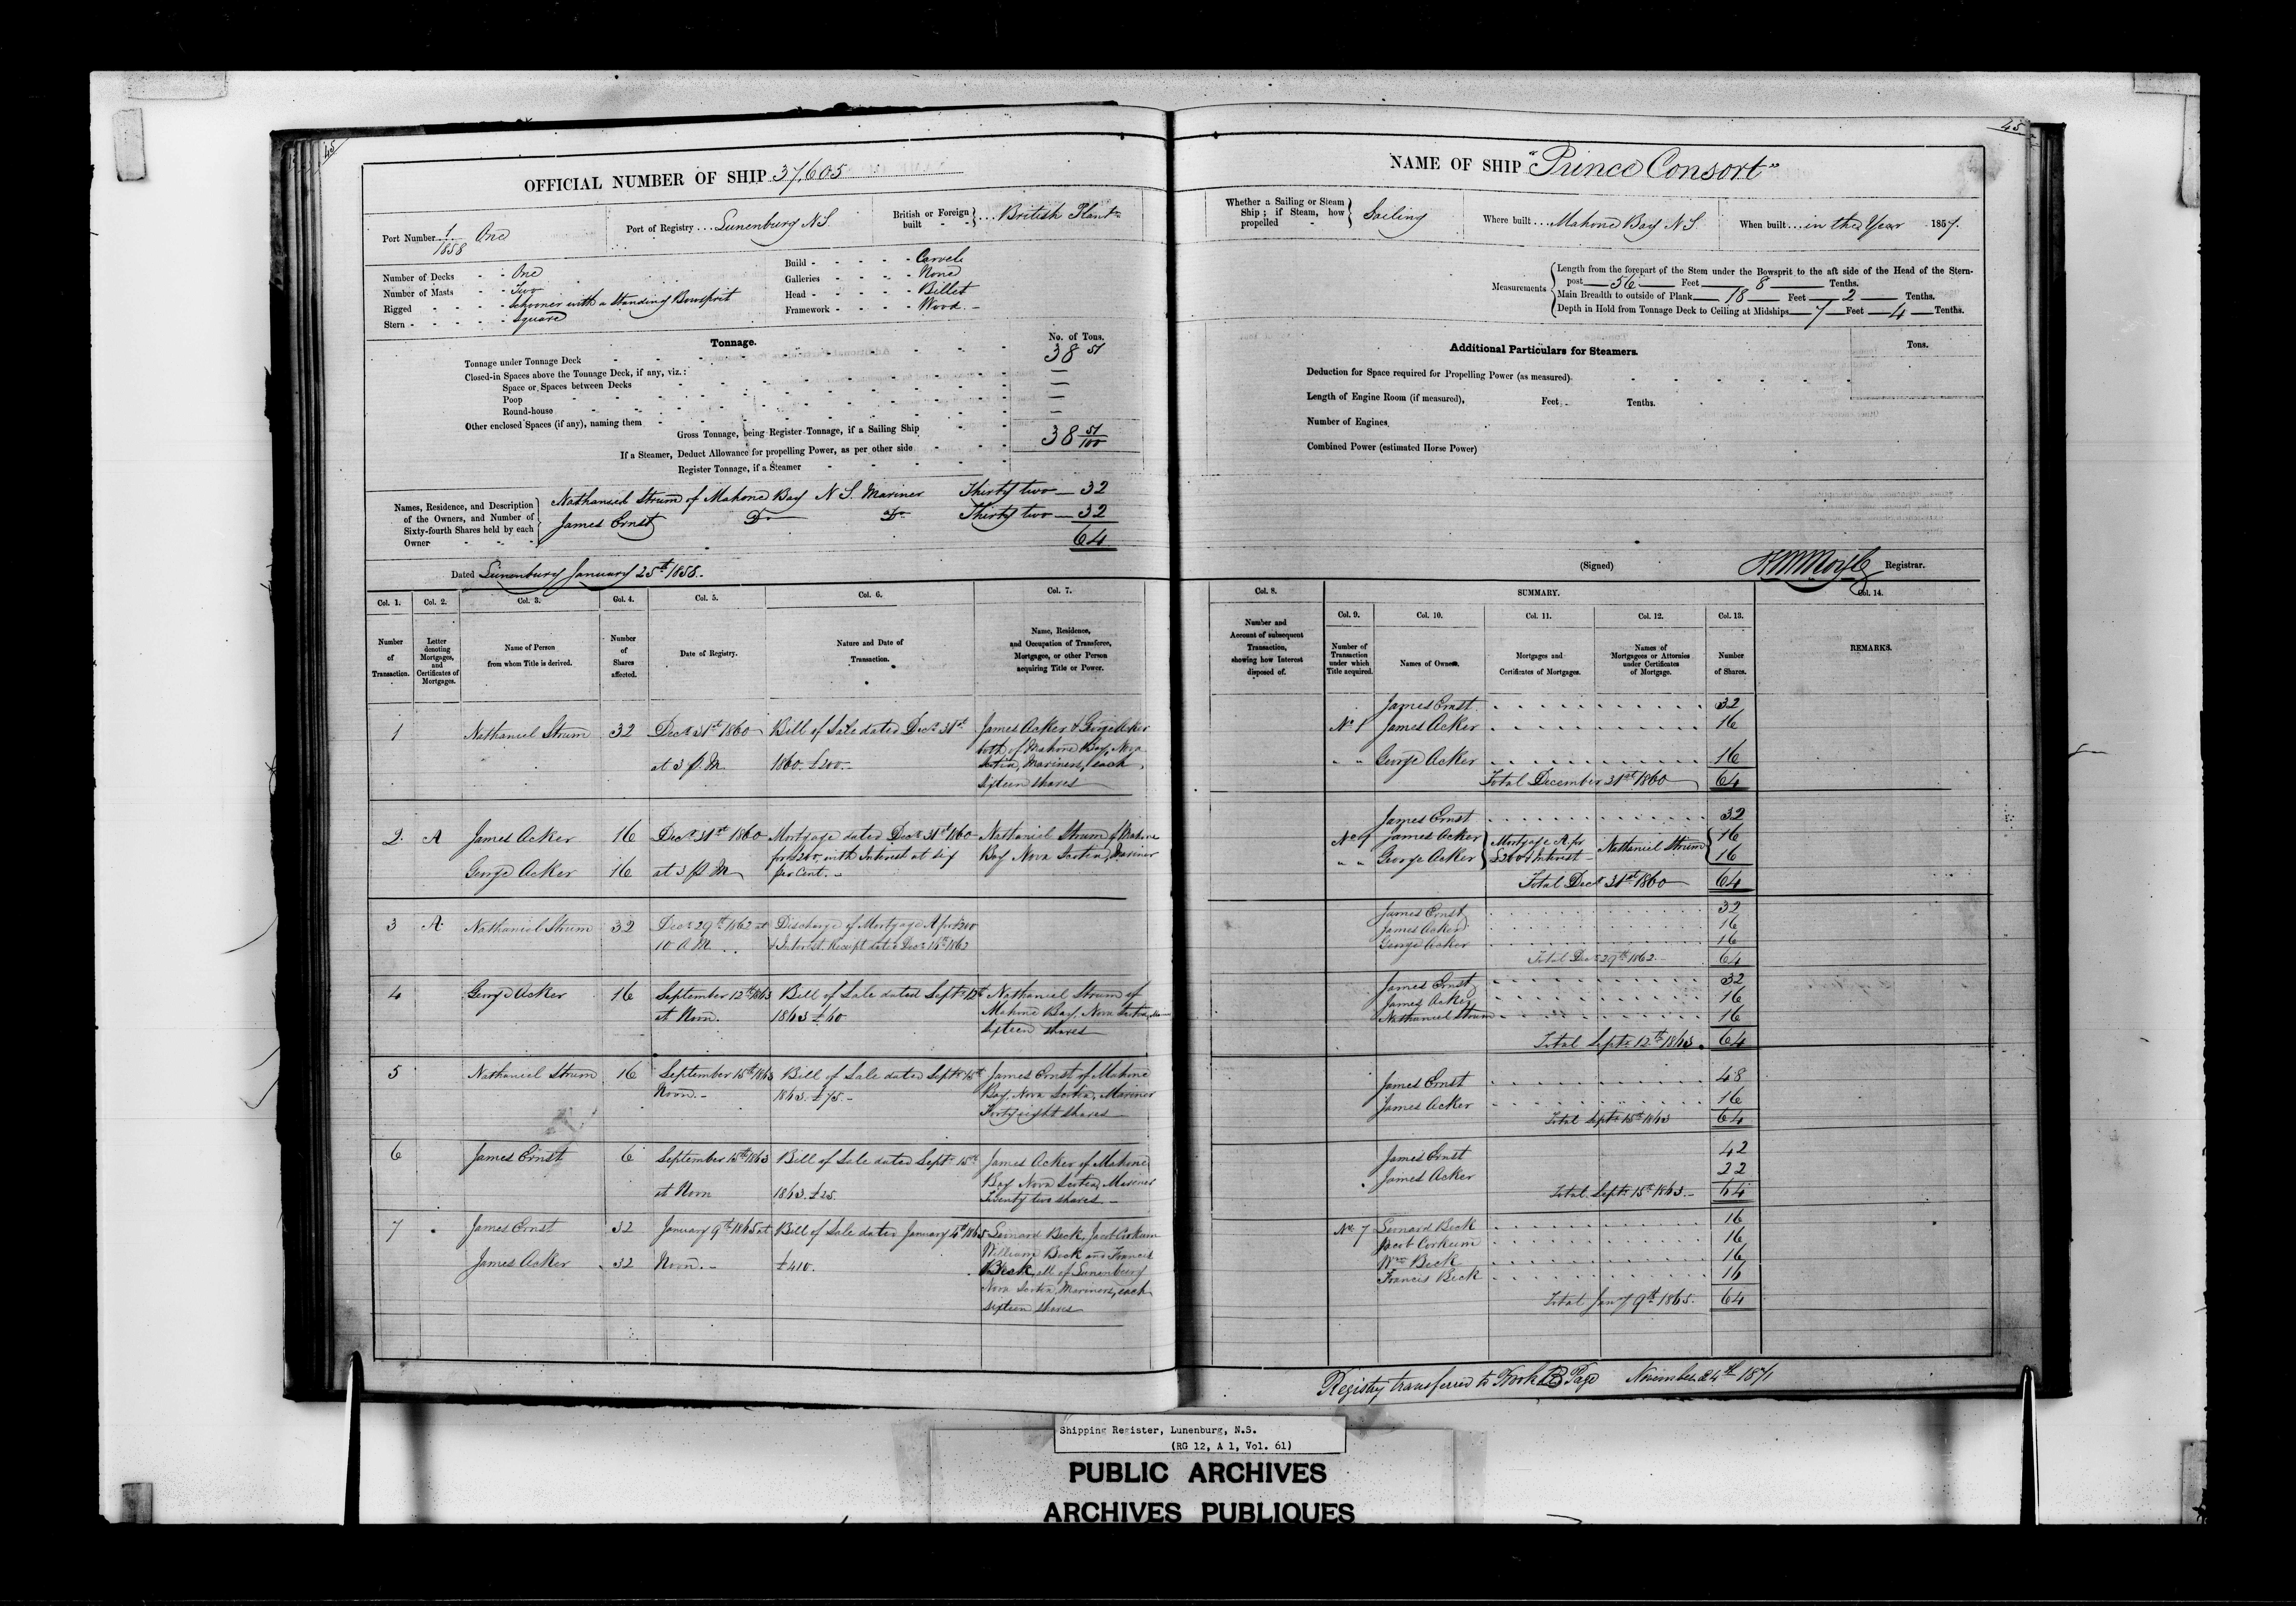 45
OFFICIAL NUMBER OF SHIP 37,605
Port Number 1/1858 One
Port of Registry Lunenburg N.S.
British or Foreign built British Plantn
Number of Decks One
Number of Masts Two
Rigged Schooner with a Standing Bowsprit
Stern Square
Build Carvel
Galleries None
Head Billet
Framework Wood
Tonnage.
No. of Tons.
Tonnage under Tonnage Deck 38 51
Closed-in Spaces above the Tonnage Deck, if any, viz.:
Space or Spaces between Decks —
Poop —
Round-house —
Other enclosed Spaces (if any), naming them —
Gross Tonnage, being Register Tonnage, if a Sailing Ship 38 51/100
If a Steamer, Deduct Allowance for propelling Power, as per other side
Register Tonnage, if a Steamer
Names, Residence, and Description of the Owners, and Number of Sixty-fourth Shares held by each Owner
Nathaniel Strum of Mahone Bay N S. Mariner Thirty two — 32
James Ernst Do Do Thirty two — 32
64
Dated Lunenburg January 25th 1858.
Col. 1. Col. 2. Col. 3. Col. 4. Col. 5. Col. 6. Col. 7.
Number of Transaction.
Letter denoting Mortgages, and Certificates of Mortgages.
Name of Person from whom Title is derived.
Number of Shares affected.
Date of Registry.
Nature and Date of Transaction.
Name, Residence, and Occupation of Transferee, Mortgagee, or other Person acquiring Title or Power.
1 Nathaniel Strum 32 Decr 31st 1860 Bill of Sale dated Decr 31st James Acker & George Acker
both of Mahone Bay, Nova
at 3 P.M. 1860. £200. Scotia, Mariners, each
sixteen shares
2 A James Acker 16 Decr 31st 1860 Mortgage dated Decr 31st 1860 Nathaniel Strum of Mahone
for £200, with Interest at six Bay Nova Scotia, Mariner
George Acker 16 at 3 P.M. per Cent.
3 A Nathaniel Strum 32 Decr 29th 1862 at Discharge of Mortgage A for £200
10 A.M. & Interest. Receipt dated Decr 1862
4 George Acker 16 September 12th 1863 Bill of Sale dated Septr 12th Nathaniel Strum of
at Noon. 1863 £60 Mahone Bay, Nova Scotia,
sixteen shares
5 Nathaniel Strum 16 September 15th 1863 Bill of Sale dated Septr 15th James Ernst of Mahone
Noon. 1863. £75. Bay, Nova Scotia, Mariner
Forty eight shares
6 James Ernst 6 September 15th 1863 Bill of Sale dated Septr 15th James Acker of Mahone
Bay Nova Scotia, Mariner
at Noon 1863. £25. Twenty two shares
7 James Ernst 32 January 9th 1865 at Bill of Sale dated January 4th 1865 Leonard Beck, Jacob Corkum
William Beck and Francis
James Acker 32 Noon. £410. Beck, all of Lunenburg
Nova Scotia, Mariners, each
sixteen shares
45
NAME OF SHIP "Prince Consort"
Whether a Sailing or Steam Ship; if Steam, how propelled Sailing
Where built Mahone Bay N S.
When built in the Year 1857.
Measurements
Length from the forepart of the Stem under the Bowsprit to the aft side of the Head of the Stern-
post 56 Feet 8 Tenths.
Main Breadth to outside of Plank 18 Feet 2 Tenths.
Depth in Hold from Tonnage Deck to Ceiling at Midships 7 Feet 4 Tenths.
Additional Particulars for Steamers.
Tons.
Deduction for Space required for Propelling Power (as measured).
Length of Engine Room (if measured), Feet. Tenths.
Number of Engines.
Combined Power (estimated Horse Power)
(Signed) Registrar.
Col. 8. SUMMARY. Col. 14.
Col. 9. Col. 10. Col. 11. Col. 12. Col. 13.
Number and Account of subsequent Transaction, showing how Interest disposed of.
Number of Transaction under which Title acquired.
Names of Owners.
Mortgages and Certificates of Mortgages.
Names of Mortgagees or Attornies under Certificates of Mortgage.
Number of Shares.
REMARKS.
James Ernst 32
No 1 James Acker 16
" " George Acker 16
Total December 31st 1860 64
James Ernst 32
No 1 James Acker Mortgage A for Nathaniel Strum 16
" " George Acker £200 & Interest 16
Total Decr 31st 1860 64
James Ernst 32
James Acker 16
George Acker 16
Total Decr 29th 1862. 64
James Ernst 32
James Acker 16
Nathaniel Strum 16
Total Septr 12th 1863. 64
James Ernst 48
James Acker 16
Total Septr 15th 1863 64
James Ernst 42
James Acker 22
Total Septr 15th 1863. 64
No 7 Leonard Beck 16
Jacob Corkum 16
Wm Beck 16
Francis Beck 16
Total Jany 9th 1865. 64
Registry transferred to Book B Page November 24th 1871
Shipping Register, Lunenburg, N.S.
(RG 12, A 1, Vol. 61)
PUBLIC ARCHIVES
ARCHIVES PUBLIQUES